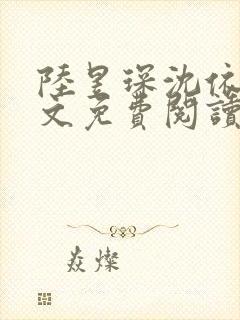 陸昱琛沈依
文免費閱讀
焱燦